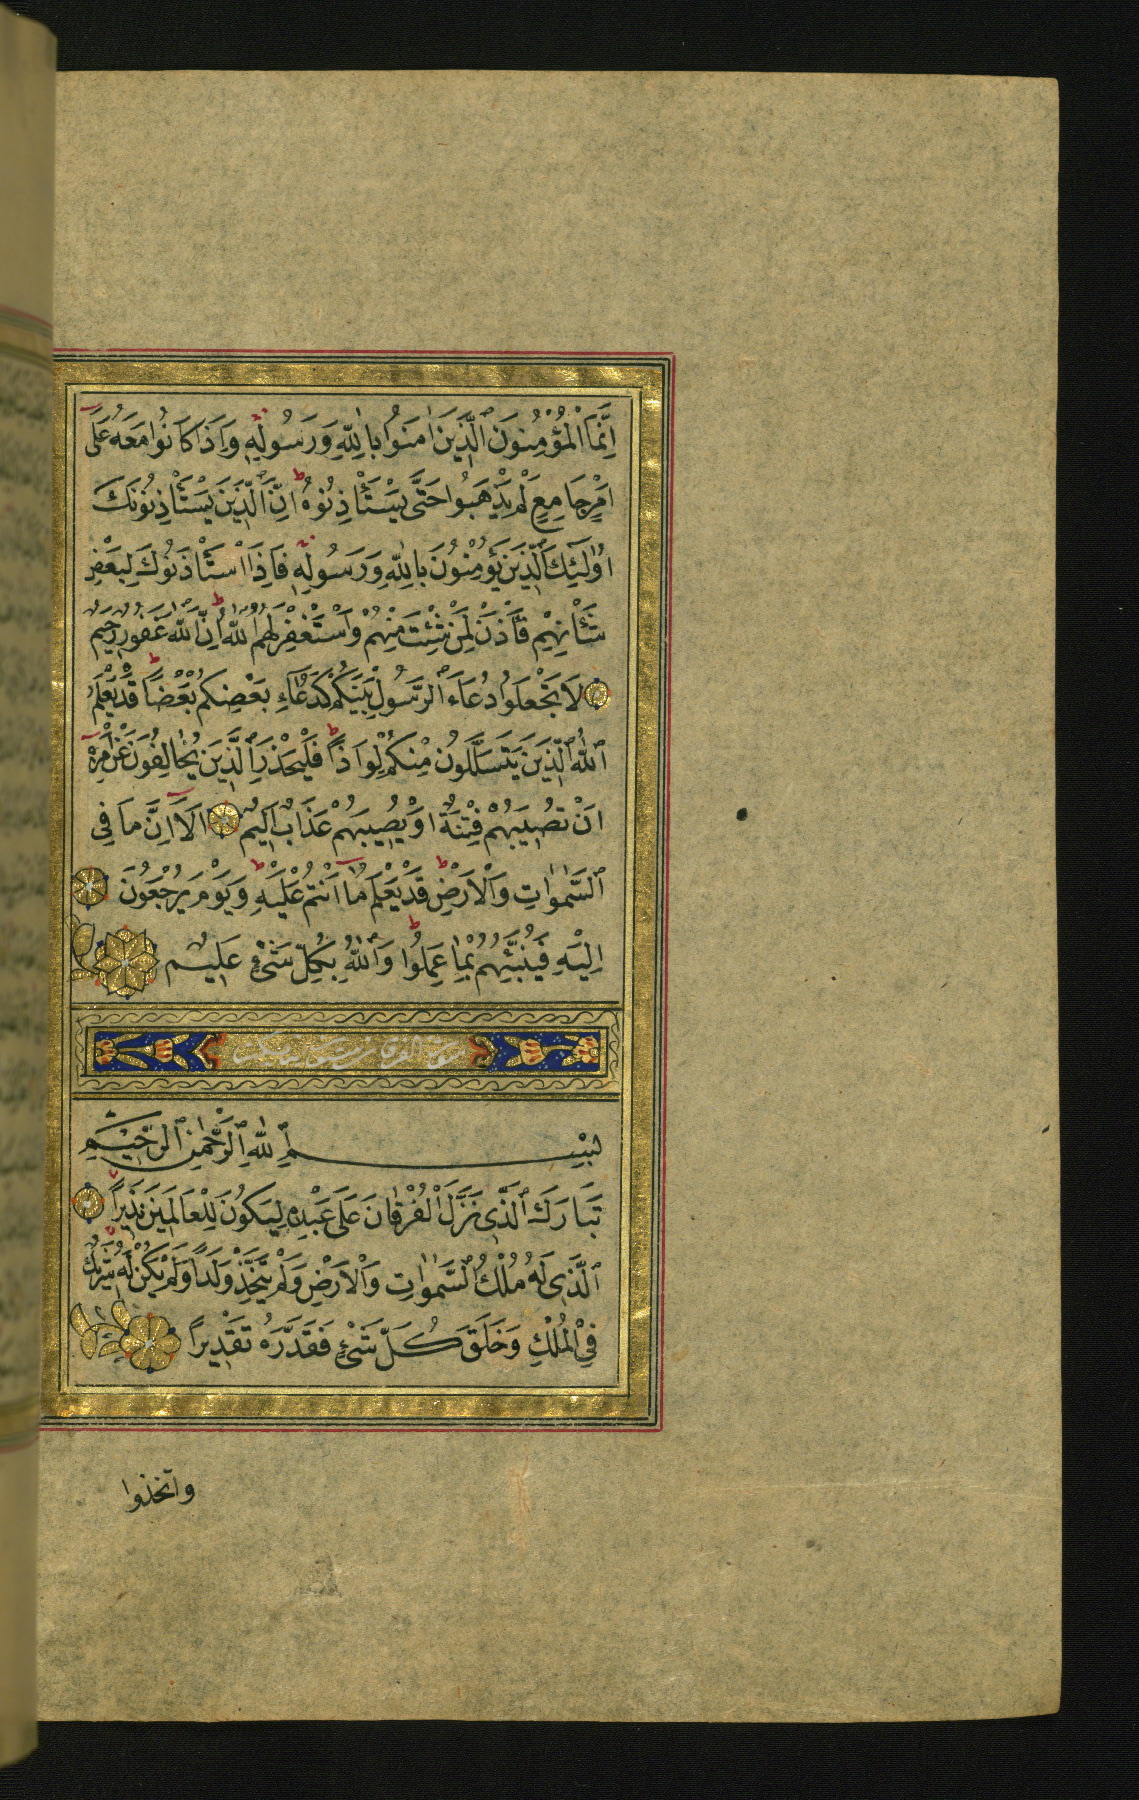 اِنَّمَا الْمُؤْمِنُونَ الَّذِينَ اٰمَنُوا بِاللّٰهِ وَرَسُولِهٖ وَاِذَا كَانُوا مَعَهُ عَلٰٓى
اَمْرٍ جَامِعٍ لَمْ يَذْهَبُوا حَتّٰى يَسْتَأْذِنُوهُ ط اِنَّ الَّذِينَ يَسْتَأْذِنُونَكَ
اُولٰئِكَ الَّذِينَ يُؤْمِنُونَ بِاللّٰهِ وَرَسُولِهٖ فَاِذَا اسْتَأْذَنُوكَ لِبَعْضِ
شَأْنِهِمْ فَأْذَنْ لِمَنْ شِئْتَ مِنْهُمْ وَاسْتَغْفِرْ لَهُمُ اللّٰهَ ط اِنَّ اللّٰهَ غَفُورٌ رَحِيمٌ
لَا تَجْعَلُوا دُعَاءَ الرَّسُولِ بَيْنَكُمْ كَدُعَاءِ بَعْضِكُمْ بَعْضًا ط قَدْ يَعْلَمُ
اللّٰهُ الَّذِينَ يَتَسَلَّلُونَ مِنْكُمْ لِوَاذًا ط فَلْيَحْذَرِ الَّذِينَ يُخَالِفُونَ عَنْ اَمْرِهٖٓ
اَنْ تُصِيبَهُمْ فِتْنَةٌ اَوْ يُصِيبَهُمْ عَذَابٌ اَلِيمٌ اَلَٓا اِنَّ مَا فِى
السَّمٰوَاتِ وَالْاَرْضِ ط قَدْ يَعْلَمُ مَٓا اَنْتُمْ عَلَيْهِ ط وَيَوْمَ يُرْجَعُونَ
اِلَيْهِ فَيُنَبِّئُهُمْ بِمَا عَمِلُوا ط وَاللّٰهُ بِكُلِّ شَىْءٍ عَلِيمٌ
سورة الفرقان
بِسْمِ اللّٰهِ الرَّحْمٰنِ الرَّحِيمِ
تَبَارَكَ الَّذِى نَزَّلَ الْفُرْقَانَ عَلٰى عَبْدِهٖ لِيَكُونَ لِلْعَالَمِينَ نَذِيرًا
الَّذِى لَهُ مُلْكُ السَّمٰوَاتِ وَالْاَرْضِ وَلَمْ يَتَّخِذْ وَلَدًا وَلَمْ يَكُنْ لَهُ شَرِيكٌ
فِى الْمُلْكِ وَخَلَقَ كُلَّ شَىْءٍ فَقَدَّرَهُ تَقْدِيرًا
واتخذوا